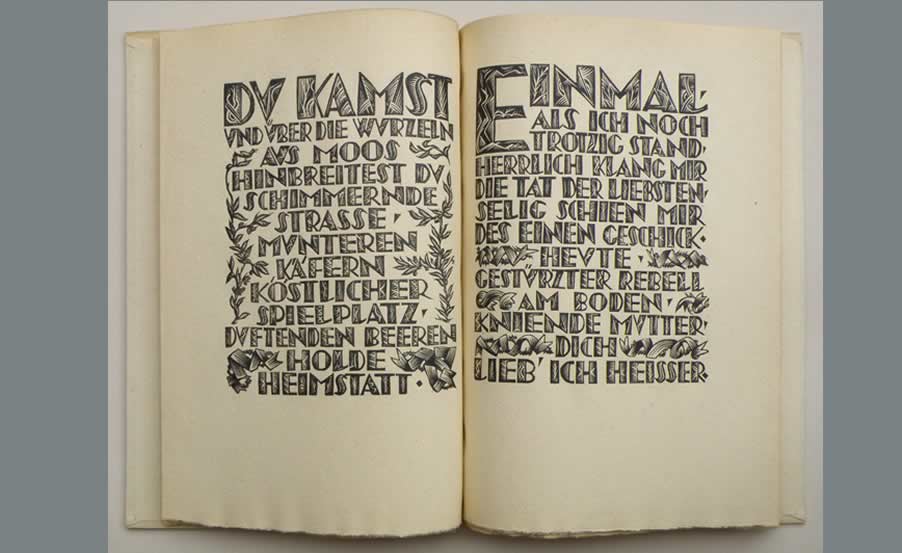 DV KAMST
VND ÜBER DIE WVRZELN
AVS MOOS
HINBREITEST DV
SCHIMMERNDE
STRASSE,
MVNTEREN
KÄFERN
KÖSTLICHER
SPIELPLATZ,
DVFTENDEN BEEREN
HOLDE
HEIMSTATT.
EINMAL,
ALS ICH NOCH
TROTZIG STAND,
HERRLICH KLANG MIR
DIE TAT DER LIEBSTEN,
SELIG SCHIEN MIR
DES EINEN GESCHICK.
HEVTE,
GESTÜRZTER REBELL
AM BODEN,
KNIENDE MVTTER,
DICH
LIEB' ICH HEISSER.